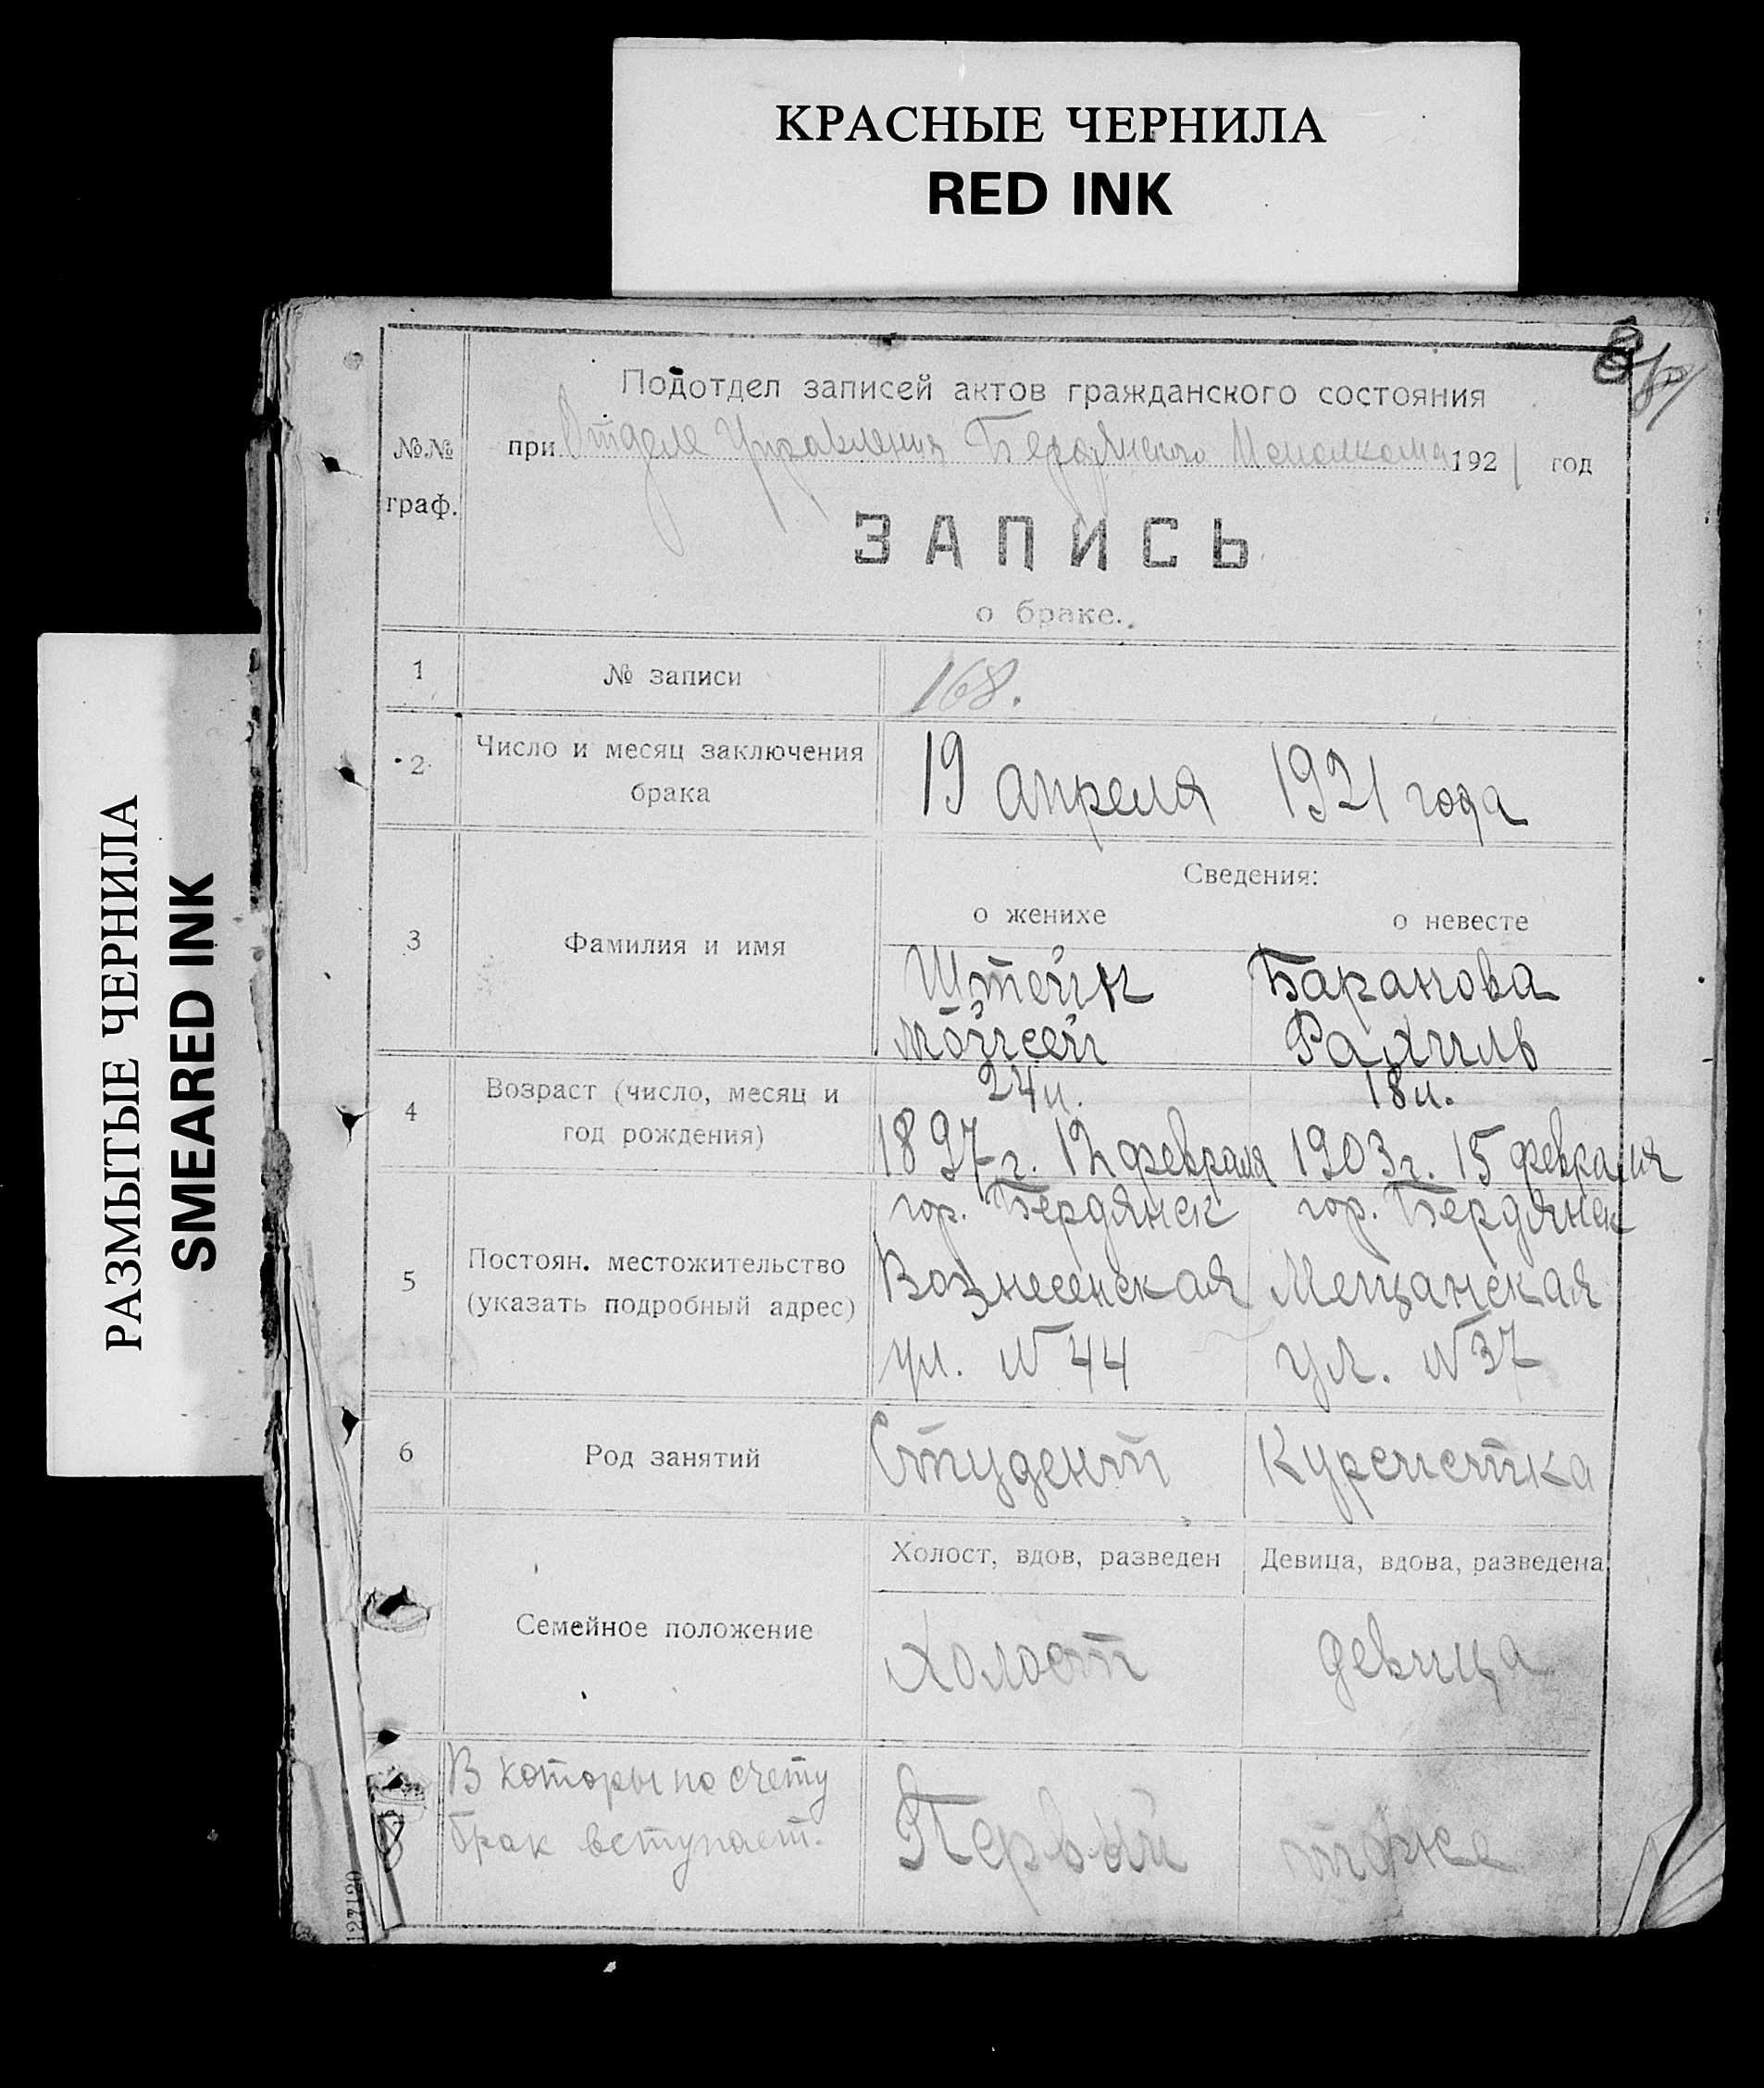 КРАСНЫЕ ЧЕРНИЛА
RED INK
РАЗМЫТЫЕ ЧЕРНИЛА
SMEARED INK
Подотдел записей актов гражданского состояния
№№ граф.
при Отделе Управления Бердянского Исполкома 1921 год
ЗАПИСЬ
о браке.
1 № записи 168.
2 Число и месяц заключения брака
19 апреля 1921 года
Сведения:
о женихе о невесте
3 Фамилия и имя
Штейн Баранова
Мойсей Рахиль
4 Возраст (число, месяц и год рождения)
24 л. 18 л.
1897 г. 12 февраля 1903 г. 15 февраля
5 Постоян. местожительство (указать подробный адрес)
гор. Бердянск гор. Бердянск
Вознесенская Мещанская
ул. N 44 ул. N 37
6 Род занятий
Студент Курсистка
Холост, вдов, разведен Девица, вдова, разведена
Семейное положение
Холост девица
В которы по счету
брак вступает.
Первый тоже
127120